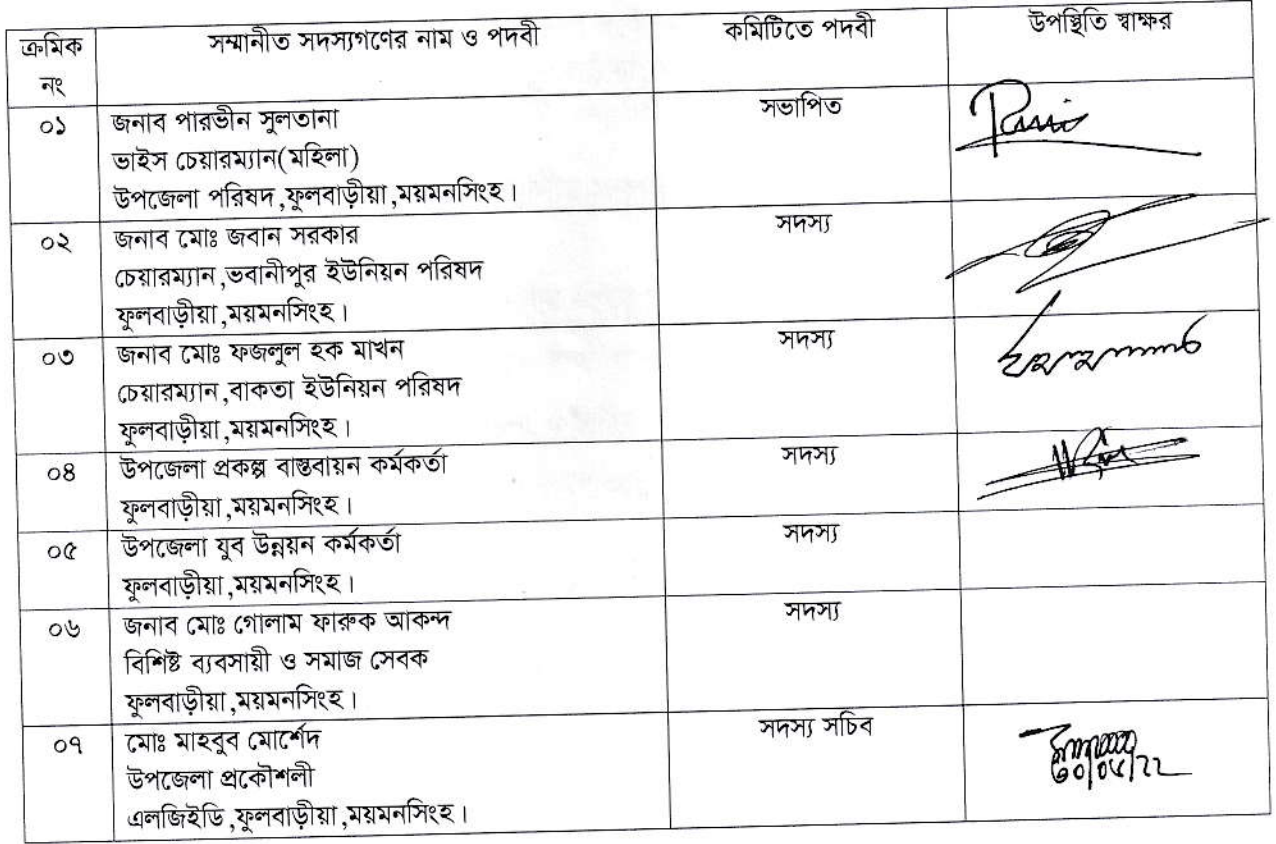 ক্রমিক নং সম্মানীত সদস্যগণের নাম ও পদবী কমিটিতে পদবী উপস্থিতি স্বাক্ষর
০১ জনাব পারভীন সুলতানা সভাপিত
ভাইস চেয়ারম্যান(মহিলা)
উপজেলা পরিষদ,ফুলবাড়ীয়া,ময়মনসিংহ।
০২ জনাব মোঃ জবান সরকার সদস্য
চেয়ারম্যান,ভবানীপুর ইউনিয়ন পরিষদ
ফুলবাড়ীয়া,ময়মনসিংহ।
০৩ জনাব মোঃ ফজলুল হক মাখন সদস্য
চেয়ারম্যান,বাকতা ইউনিয়ন পরিষদ
ফুলবাড়ীয়া,ময়মনসিংহ।
০৪ উপজেলা প্রকল্প বাস্তবায়ন কর্মকর্তা সদস্য
ফুলবাড়ীয়া,ময়মনসিংহ।
০৫ উপজেলা যুব উন্নয়ন কর্মকর্তা সদস্য
ফুলবাড়ীয়া,ময়মনসিংহ।
০৬ জনাব মোঃ গোলাম ফারুক আকন্দ সদস্য
বিশিষ্ট ব্যবসায়ী ও সমাজ সেবক
ফুলবাড়ীয়া,ময়মনসিংহ।
০৭ মোঃ মাহবুব মোর্শেদ সদস্য সচিব
উপজেলা প্রকৌশলী
এলজিইডি,ফুলবাড়ীয়া,ময়মনসিংহ।